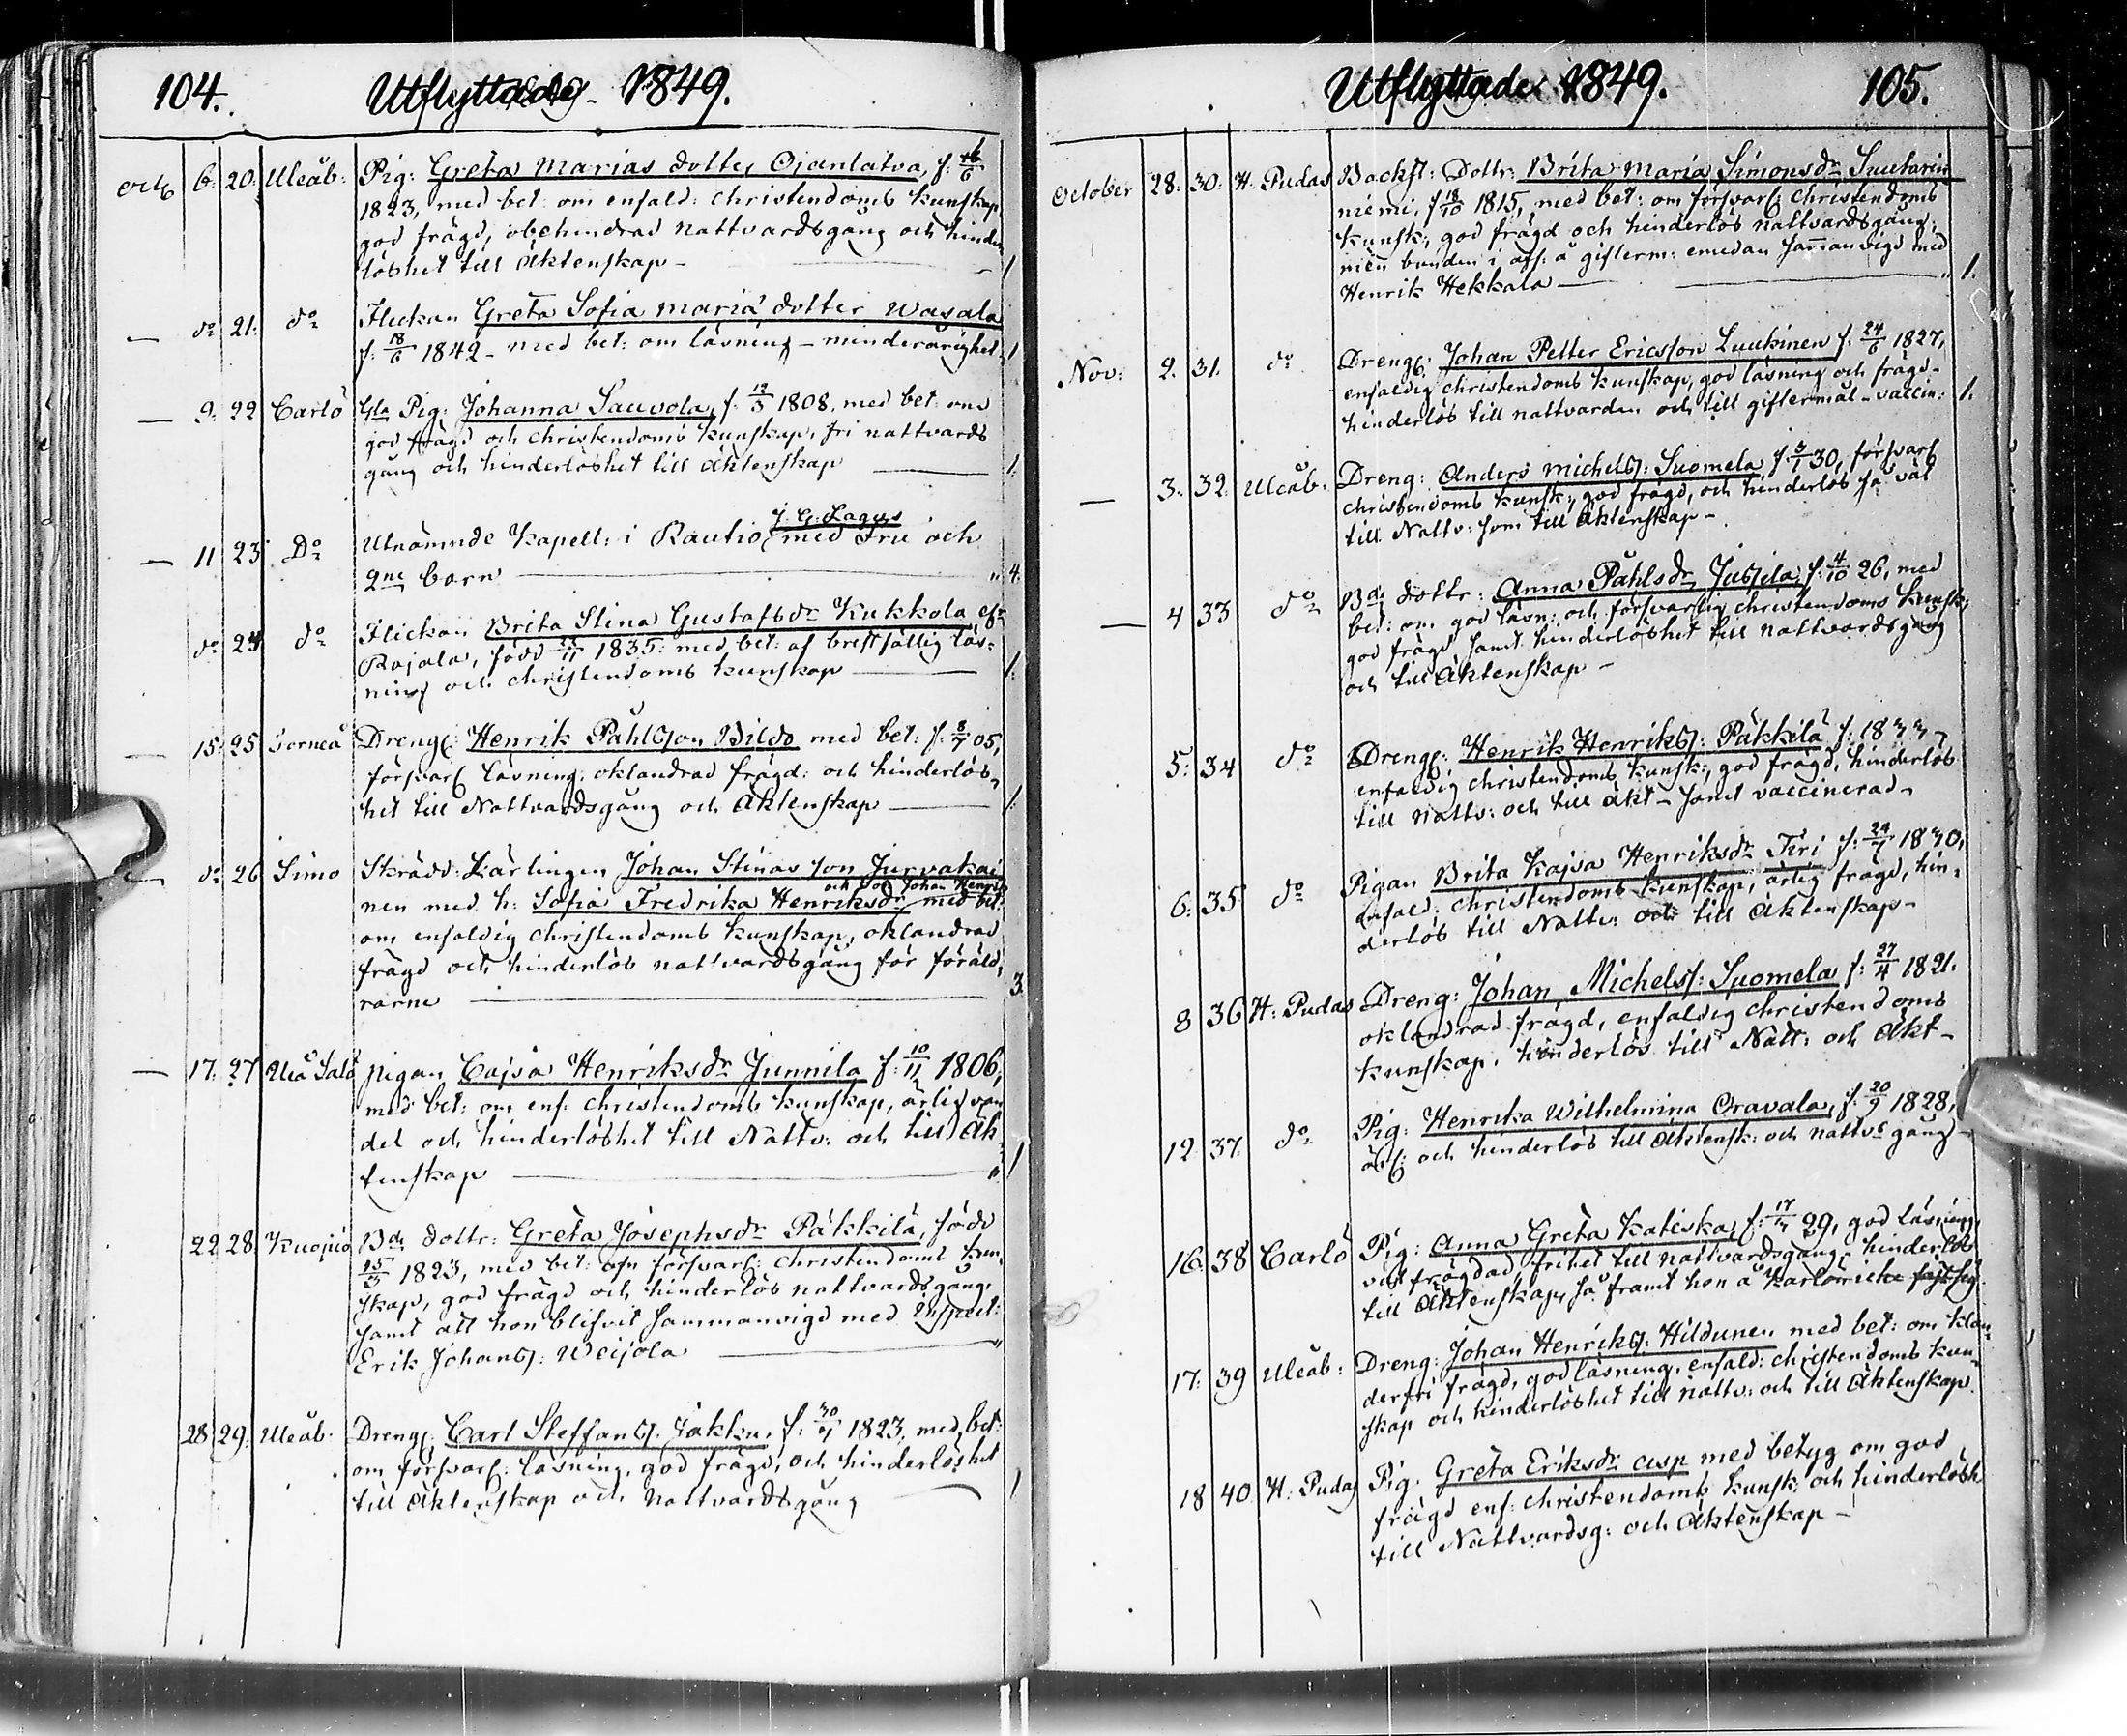 104. Utflyttade 1849.
Octb 6. 20. Uleåb: Pig: Greta Marias dotter Ojanlatva, f:
1823, med bet: om enfald: christendoms kunskap,
god frägd, obehindrad nattvardsgång och hinder
löshet till äktenskap — 1.
— do 21. do Flickan Greta Sofia Maria dotter Wasala
f: 18/6 1842 - med bet: om läsning - minderårighet - 1
— 9. 22 Carlö Gla Pig: Johanna Sauvola, f: 12/3 1808, med bet: om
god frägd och christendoms kunskap, fri nattvards
gång och hinderlöshet till äktenskap — 1.
J. G. Lagus
— 11 23 Do Utnämnde Kapell: i Rautio med Fru och
2ne barn — " 4.
do 24 do Flickan Brita Stina Gustafsdr Kukkola
Rajala, född 1835: med bet: af bristfällig läs-
ning och christendoms kunskap — 1.
— 15. 25 Torneå Dreng: Henrik Påhlsson Bildo med bet: f: 8/7 05,
försvarl läsning, oklandrad frägd: och hinderlös-
het till Nattvardsgång och äktenskap — 1.
— do 26 Simo Skrädd: Lärlingen Johan Stinas son Jurvakai
och son Johan Henrik
nen med h: Sofia Fredrika Henriksdr med bet:
om enfaldig christendoms kunskap, oklandrad
frägd och hinderlös nattvardsgång för föräld-
rarne — 3.
— 17. 27 Uleå Salo pigan Cajsa Henriksdr Junnila f: 10/11 1806,
med bet: om enf: christendoms kunskap, ärlig van
del och hinderlöshet till Nattv: och till äk-
tenskap — " 1
22 28. Kuopio Bde dottr: Greta Josephsdr Päkkilä, född
1823, med bet: om försvarl: christendoms kun-
skap, god frägd och hinderlös nattvardsgång,
samt att hon blifvit sammanvigd med Inspect:
Erik Johanss: Weijola — "
28 29. Uleåb: Dreng: Carl Steffanss: Jäkku, f: 1823, med bet:
om försvarl: läsning, god frägd, och hinderlöshet
till äktenskap och Nattvardsgång — 1
Utflyttade 1849. 105.
October 28. 30. H: Pudas Backst: Dottr: Brita Maria Simonsdr Suutarin
niemi, f 18/10 1815, med bet: om försvarl: christendoms
kunsk:, god frägd och hinderlös nattvardsgång,
men bunden i afs: å gifterm: emedan sammanvigd med
Henrik Hekkala — " 1.
Nov: 2. 31. do Dreng: Johan Petter Ericsson Luukinen f: 24/6 1827,
enfaldig christendoms kunskap, god läsning och frägd -
hinderlös till nattvarden och till giftermål - vaccin: 1.
— 3. 32. Uleåb. Dreng: Anders Michelss: Suomela f: 3/1 30, försvarl
christendoms kunsk:, god frägd, och hinderlös så väl
till Nattv: som till äktenskap -
— 4 33 do Bde dottr: Anna Påhlsdr f: 4/10 26, med
bet: om god läsn: och försvarlig christendoms kunsk:
god frägd, samt hinderlöshet till nattvardsgång
och till äktenskap -
5. 34 do Dreng: Henrik Henrikss: Päkkilä f: 1833,
enfaldig christendoms kunsk:, god frägd, hinderlös
till Nattv: och till äkt - samt vaccinerad -
6. 35. do Pigan Brita Kajsa Henriksdr Firi f: 1830,
enfald: christendoms kunskap, ärlig frägd, hin-
derlös till Nattv: och till äktenskap -
8 36 H: Pudas Dreng: Johan Michelss: Suomela f: 27/4 1821.
oklandrad frägd, enfaldig christendoms
kunskap, hinderlös till Natt: och äkt -
12 37. do Pig: Henrika Wilhelmina Oravala, f: 20/9 1828,
och hinderlös till äktensk: och nattvs gång -
16. 38 Carlö Pig: Anna Greta Katiska, f: 29, god läsning,
frägdad, frihet till nattvardsgång, hinderlös
till äktenskap, så framt hon å Karlö icke fäst sig.
17. 39 Uleåb: Dreng: Johan Henrikss: Hildunen med bet: om klan-
derfri frägd, god läsning, enfald: christendoms kun-
skap och hinderlöshet till nattv: och till äktenskap.
18 40. H: Pudas Pig: Greta Eriksdr Asp med betyg om god
frägd enf: christendoms kunsk: och hinderlösh:
till Nattvardsg: och äktenskap -